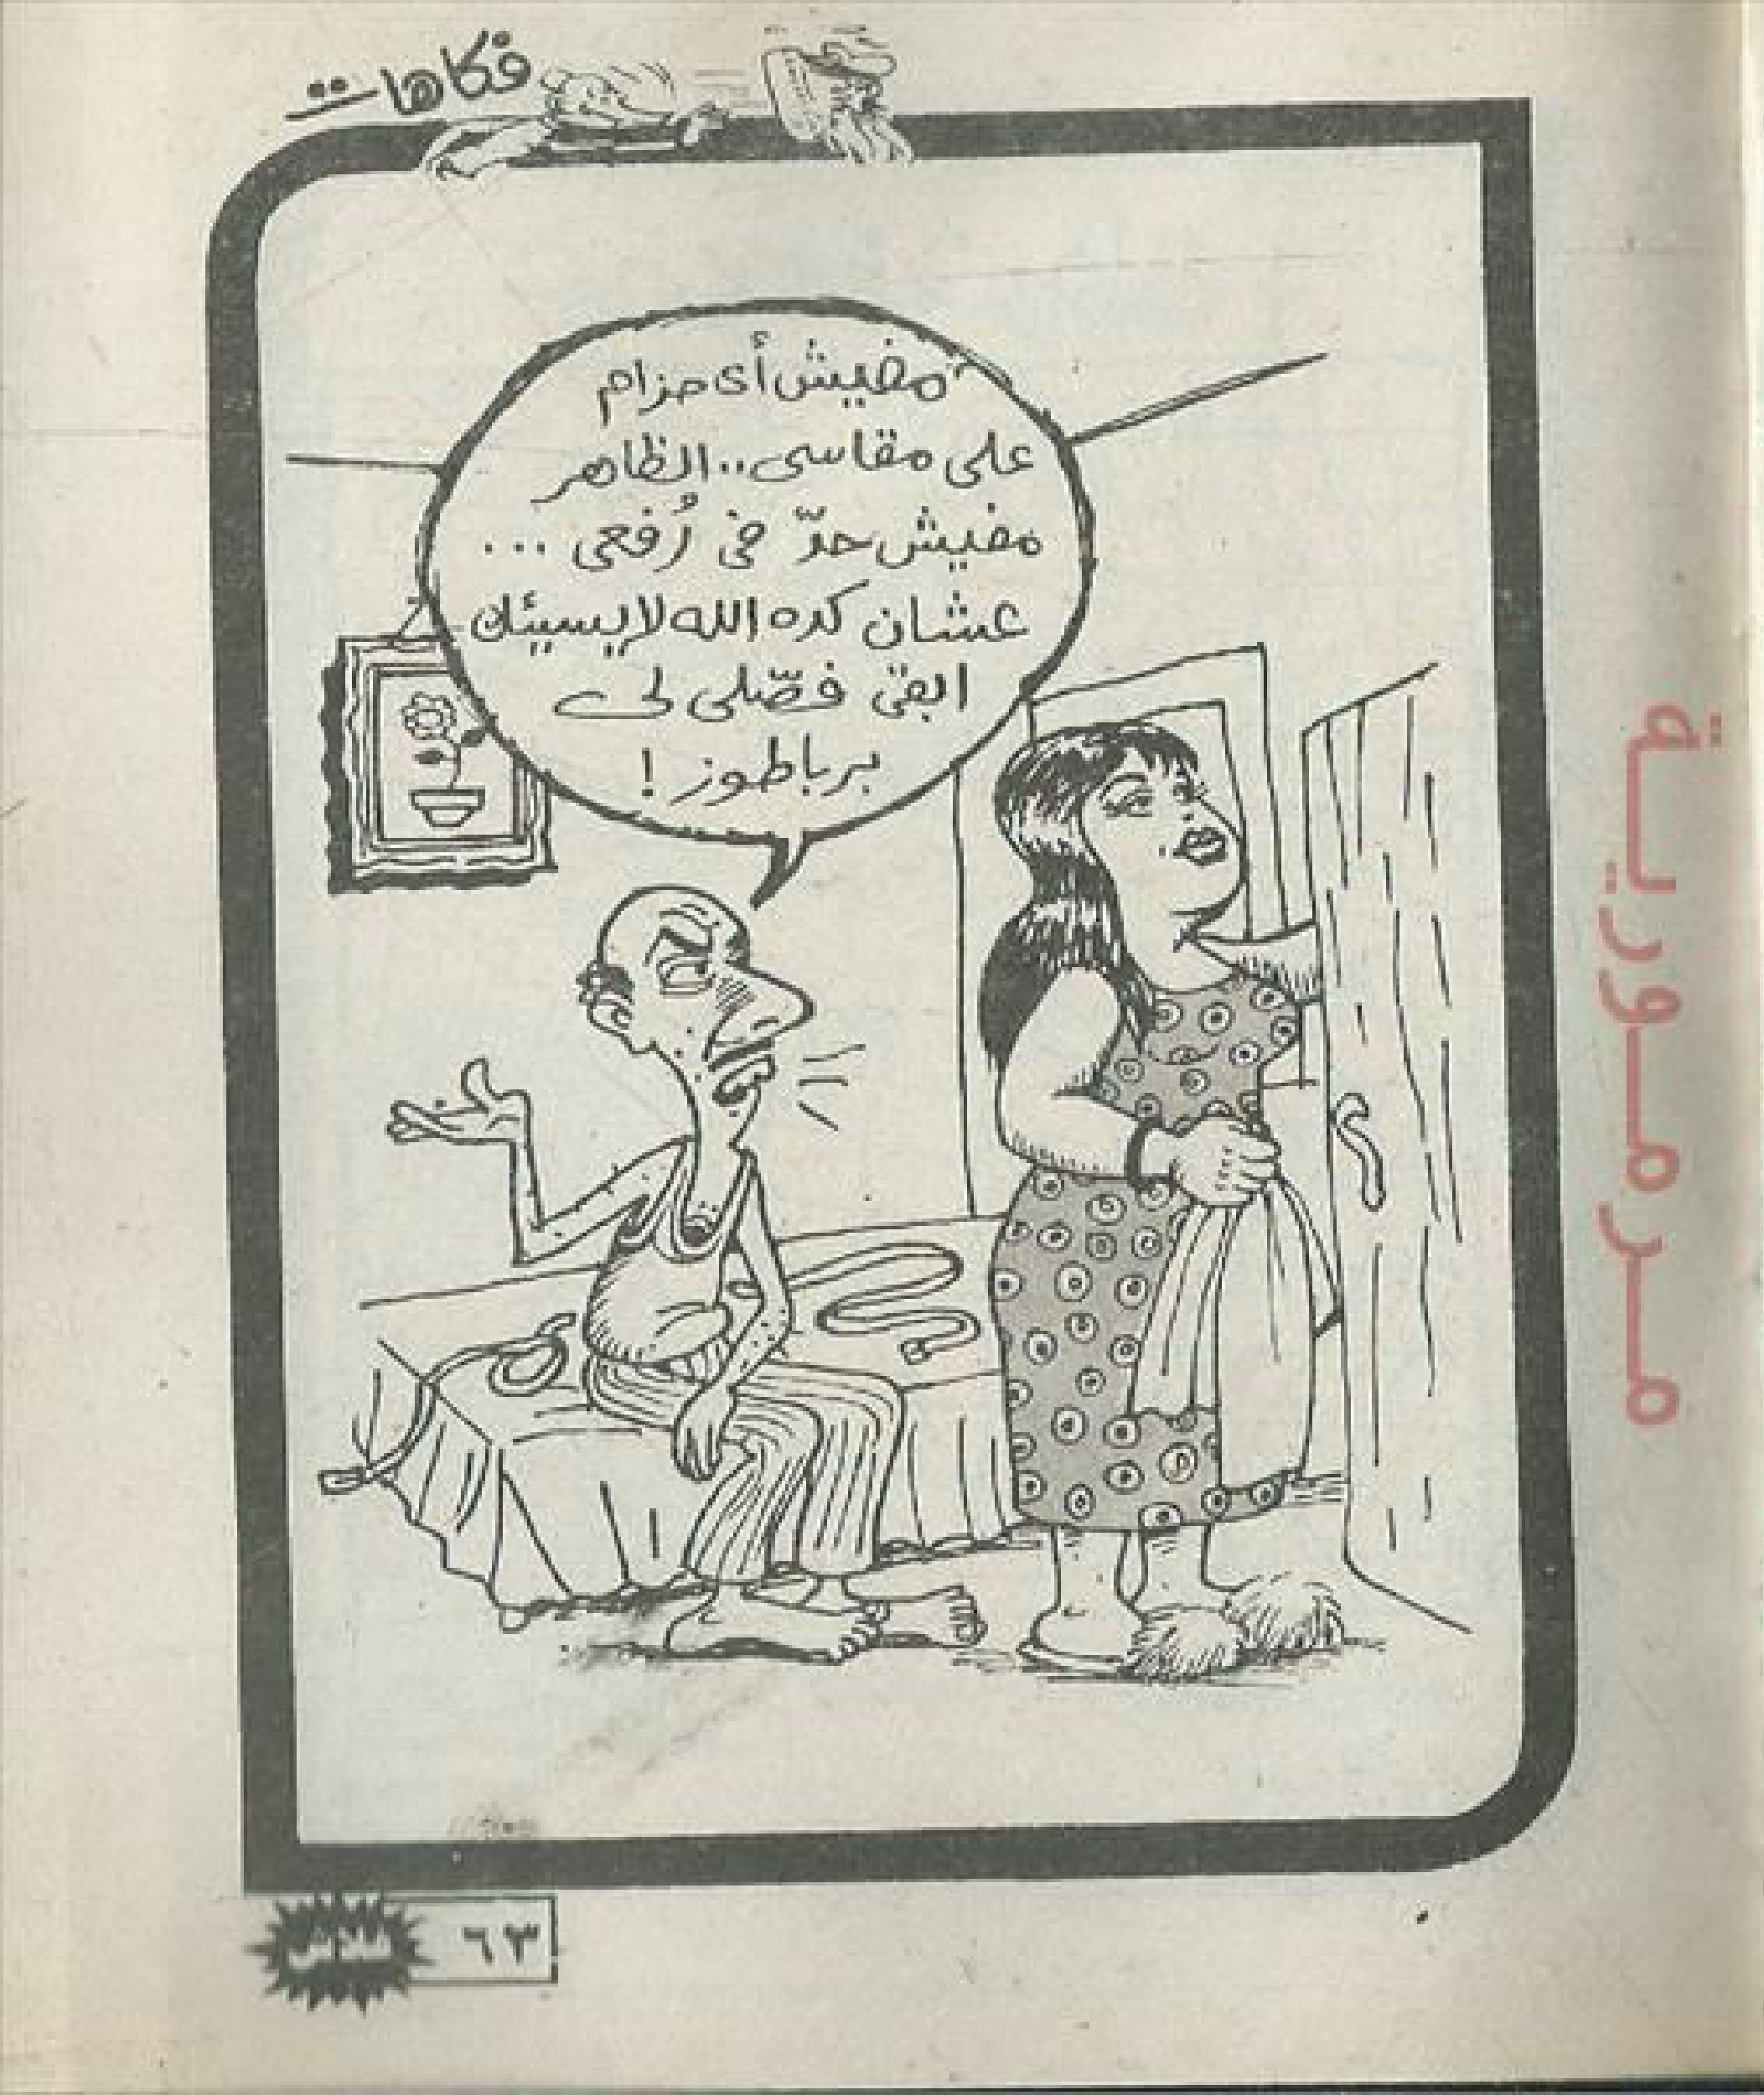 فكاهات
مفيش أى حزام
على مقاسى.. الظاهر
مفيش حدّ فى رُفعى ...
عشان كده الله لا يسيئك
ابقى فصّلى لى
برباطوز !
مرمورية
٦٣